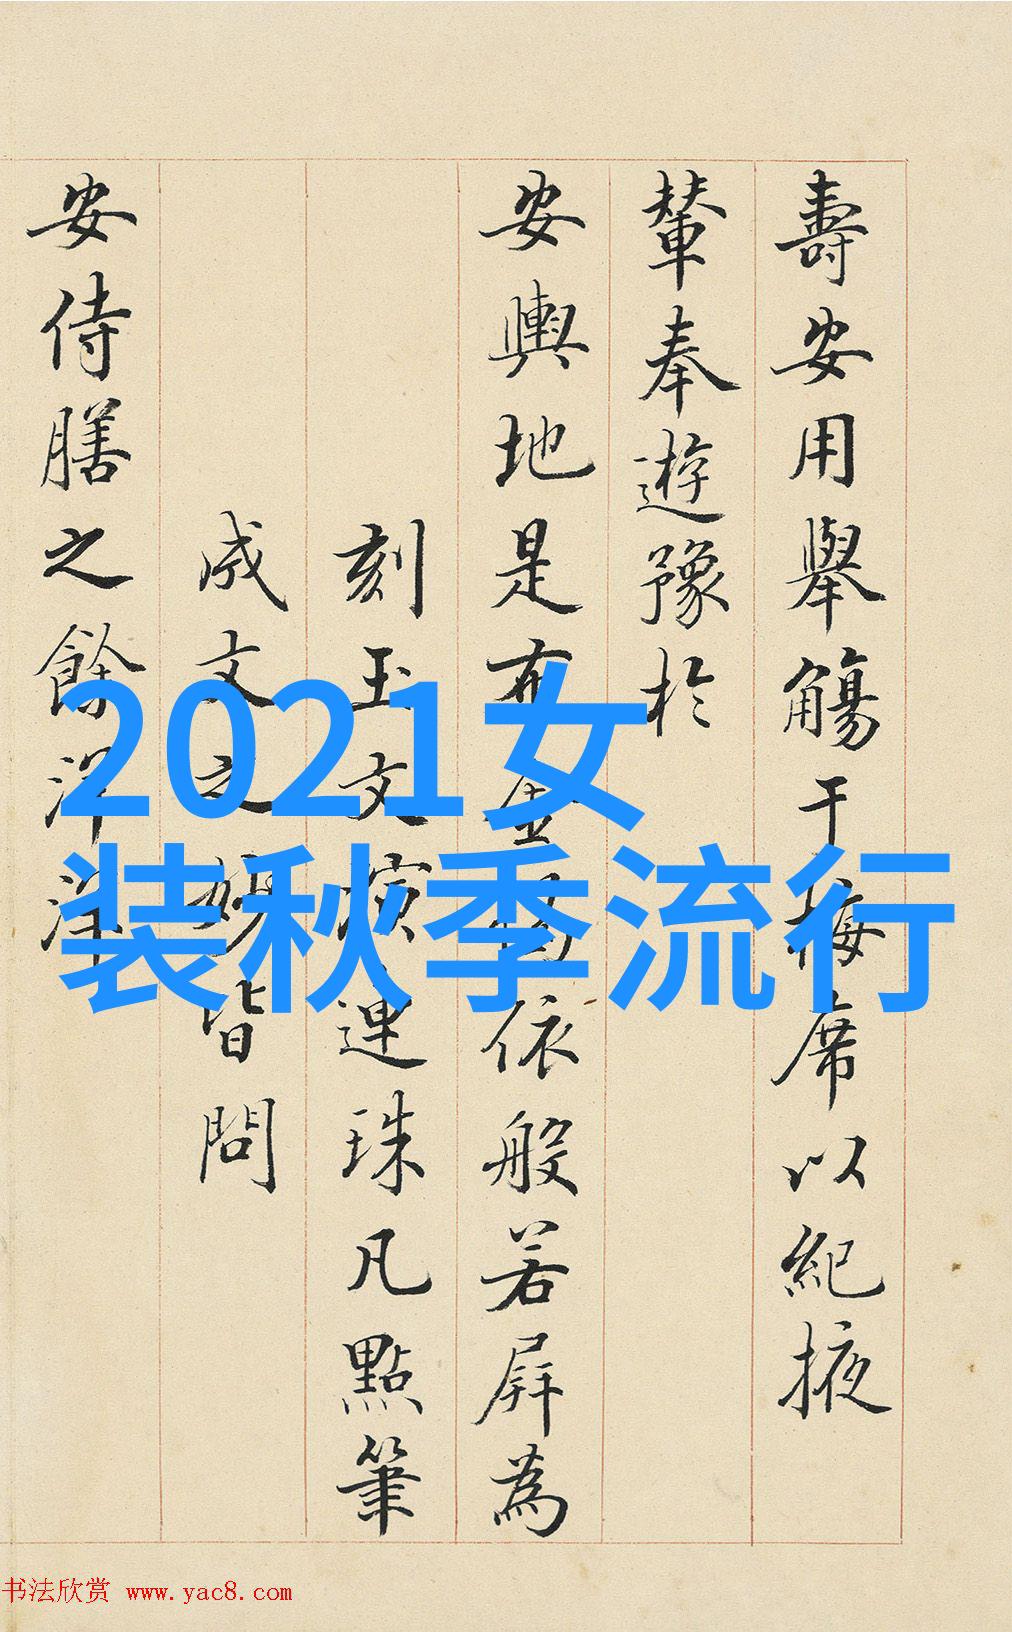 壽安用舉觴干梅席以紀掖
輦奉遊豫於
安輿地是布金揚依般若屏為
刻玉文演連珠凡點筆
成文之妙皆問
安侍膳之餘洋洋
2021女
装秋季流行
书法欣赏 www.yac8.com